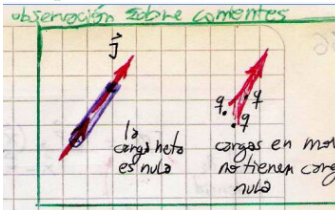 observación sobre corrientes
J
la
carga neta
es nula
q q
q
cargas en mov
no tienen carga
nula